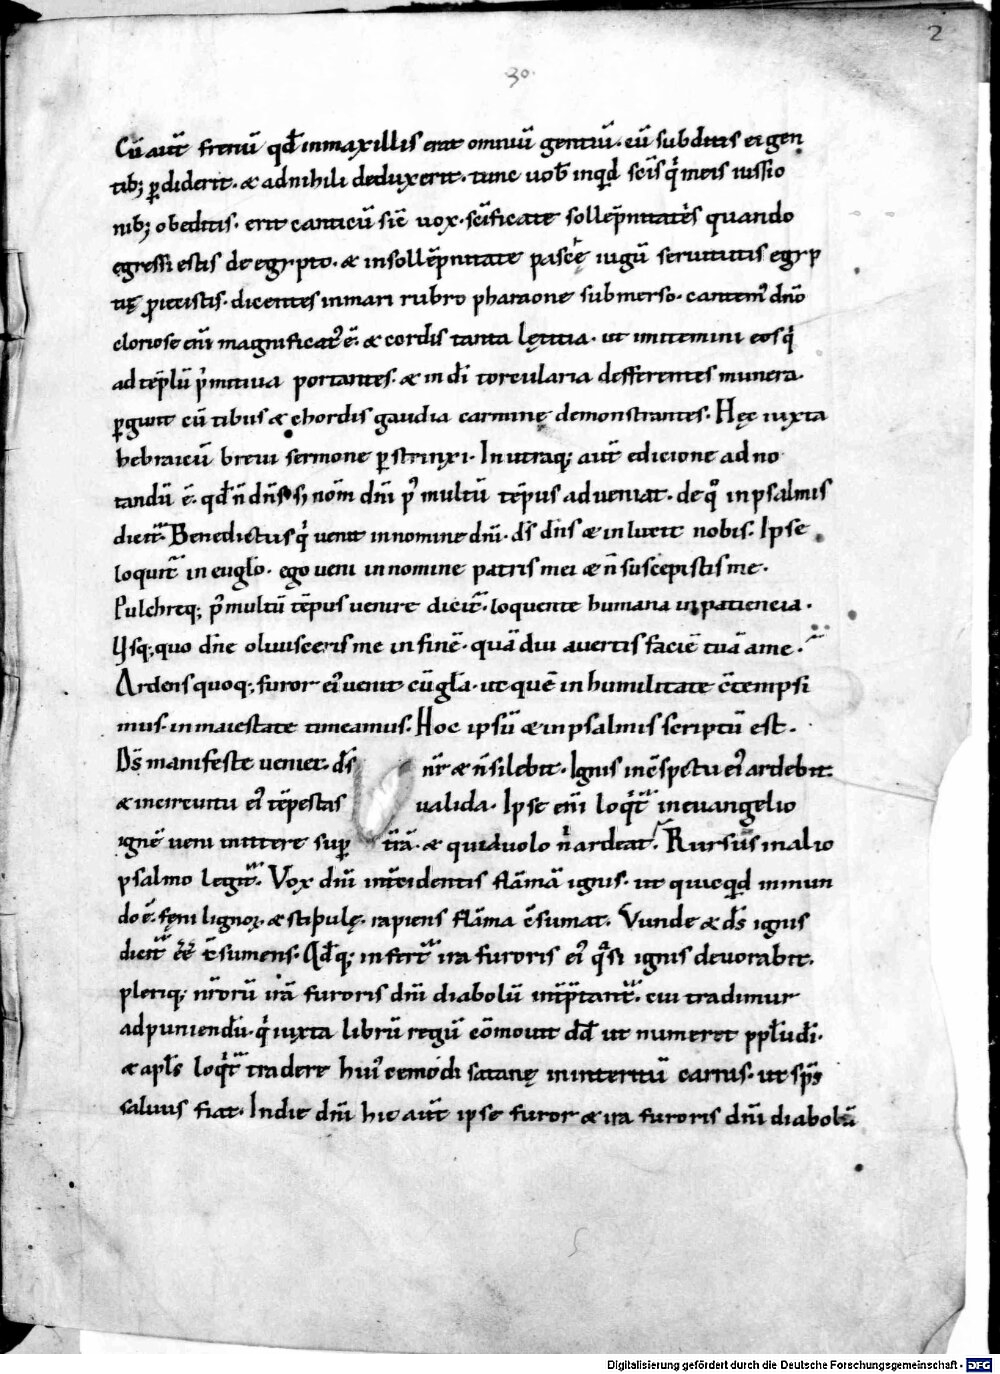 2
30.
Cū aūt frenū qđ inmaxillis erat omniū gentiū. eū subditis ei gen
tib; ꝑdiderit. & adnihili deduxerit. tunc uob̄ inqđ sc̄is q̇ meis iussio
nib; obeditis. erit canticū sic̄ uox. sc̄ificate sollēpnitatēs quando
egressi estis de egypto. & insollēpnitate pascę iugū seruitutis egyp
tię ꝓieistis. dicentes inmari rubro pharaone submerso. cantem᾽ dn̄o
gloriose enī magnificat᾽ ē. & cordis tanta lętitia. ut imitemini eos q̇
ad tēplū p̄mitiua portantes. & in dī torcularia defferentes munera.
ꝑgunt cū tibus & chordis gaudia carminę demonstrantes. Hęc iuxta
hebraicū breui sermone ꝑstrinxi. In utraq; aūt edicione adno
tandū ē. qđ n̄ dn̄s. s; nōm dn̄i p̄ multū tēpus adueniat. de q° inpsalmis
dicit᷑. Benedictus q̇ uenit innomine dn̄i. ds̄ dn̄s & inluxit nobis. Ipse
loquit᷑ in euglō. ego ueni innomine patris mei & n̄ suscepistis me.
Pulchreq; p̄ multū tēpus uenire dicit᷑. loquente humana inpatiencia.
Usq; quo dn̄e obliuisceris me in finē. quādiu auertis faciē tuā ame.
Ardens quoq; furor ei᾽ uenit cū gl̄a. ut quē inhumilitate c̄tempsi
mus. inmaiestate timeamus. Hoc ipsū & inpsalmis scriptū est.
Ds̄ manifeste ueniet. ds̄ nr̄ & n̄ silebit. Ignis inc̄spectu ei᾽ ardebit.
& incircuitu ei᾽ tēpestas ualida. Ipse enī loq̇t᷑ ineuangelio
ignē ueni mittere suꝑ t̄rā. & quid uolo n̄ ardeat. Rursūs inalio
psalmo legit᷑. Vox dn̄i int̄cidentis flāmā ignis. ut quicqđ inmun
do ē. fęni lignoꝝ. & stipulę. rapiens flāma c̄sumat. Vnde & ds̄ ignis
dicit᷑ ēē c̄sumens. Adq; infert᷑ ira furoris ei᾽ q̇si ignis deuorabit.
pleriq; nr̄orū irā furoris dn̄i diabolū int̄p̄tant᷑. cui tradimur
adpuniendū. q̇ iuxta librū regū cōmouit dđ ut numeret ppl̄udī.
& apl̄s loq̇t᷑ tradere hui᾽cemodi satanę ininteritū carnis. ut sp̄s
saluus fiat. Indie dn̄i hic aūt ipse furor & ira furoris dn̄i diabolū
Digitalisierung gefördert durch die Deutsche Forschungsgemeinschaft - DFG